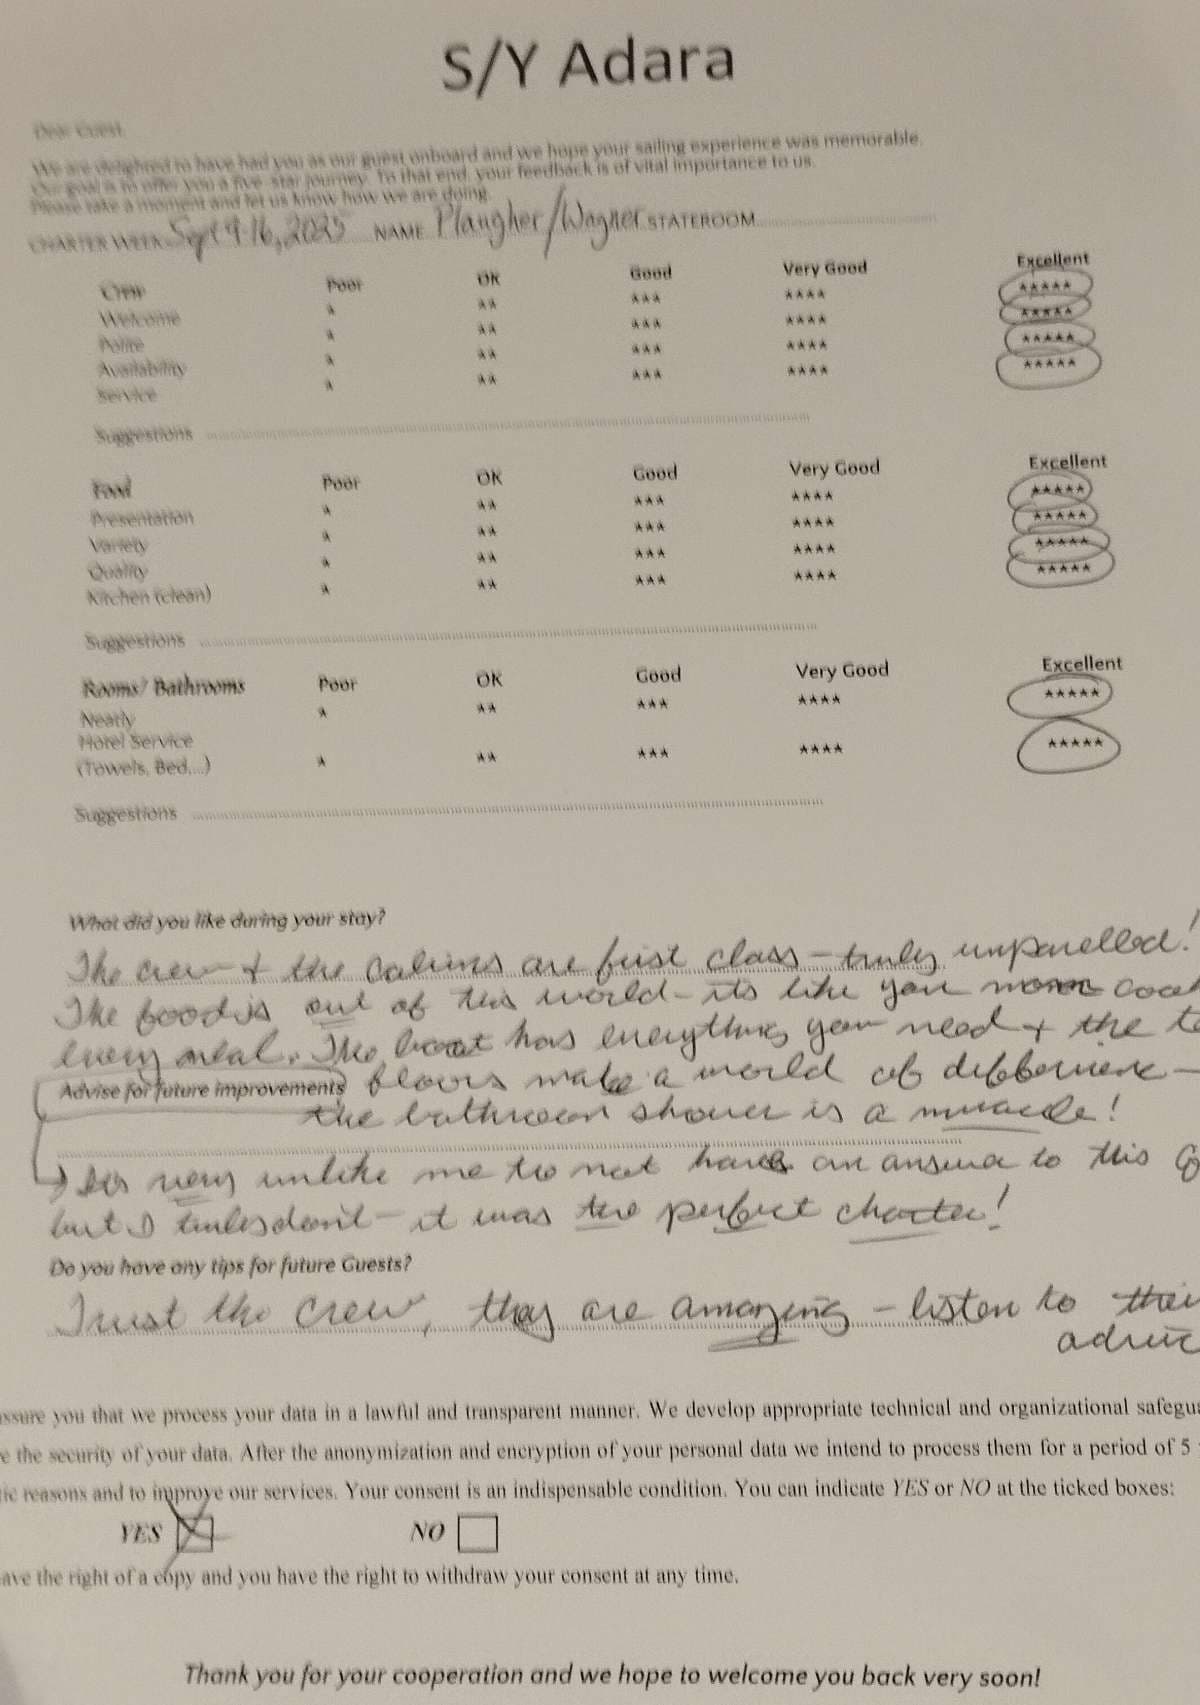 S/Y Adara
Dear Guest,
We are delighted to have had you as our guest onboard and we hope your sailing experience was memorable.
Our goal is to offer you a five-star journey. To that end, your feedback is of vital importance to us.
Please take a moment and let us know how we are doing.
CHARTER WEEK Sept 9-16, 2025 NAME Plaugher/Wagner STATEROOM
Crew Poor OK Good Very Good Excellent
Welcome * ** *** **** *****
Polite * ** *** **** *****
Availability * ** *** **** *****
Service * ** *** **** *****
Suggestions
Food Poor OK Good Very Good Excellent
Presentation * ** *** **** *****
Variety * ** *** **** *****
Quality * ** *** **** *****
Kitchen (clean) * ** *** **** *****
Suggestions
Rooms/ Bathrooms Poor OK Good Very Good Excellent
Neatly * ** *** **** *****
Hotel Service
(Towels, Bed,...) * ** *** **** *****
Suggestions
What did you like during your stay?
The crew + the cabins are first class - truly unparelled!
The food is out of this world - its like your mom
every meal. The boat has everything you need + the
Advise for future improvements floors make a world of difference -
the bathroom shower is a miracle!
Its very unlike me to not have an answer to this
but I truly don't - it was the perfect charter!
Do you have any tips for future Guests?
Trust the crew, they are amazing - listen to their
assure you that we process your data in a lawful and transparent manner. We develop appropriate technical and organizational
the security of your data. After the anonymization and encryption of your personal data we intend to process them for a period of 5
reasons and to improve our services. Your consent is an indispensable condition. You can indicate YES or NO at the ticked boxes:
YES NO
the right of a copy and you have the right to withdraw your consent at any time.
Thank you for your cooperation and we hope to welcome you back very soon!